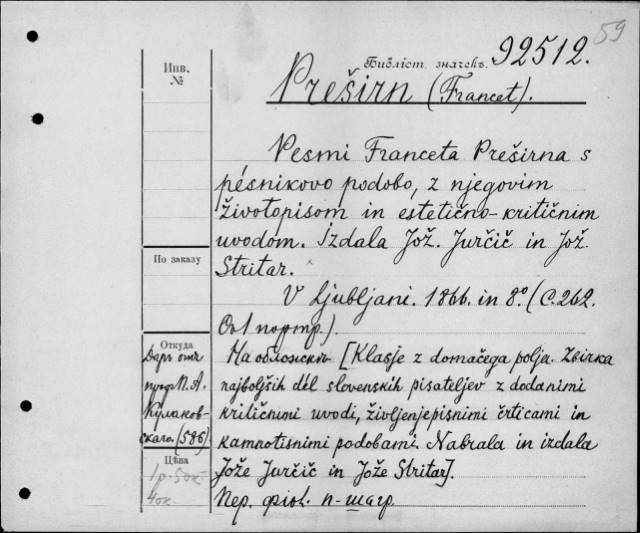 59
Библіот. значекъ. 92512.
Инв.
№
Preširn (Francet).
Pesmi Franceta Preširna s
pésnikovo podobo, z njegovim
životopisom in estetično-kritičnim
uvodom. Izdala Jož. Jurčič in Jož.
Stritar.
По заказу
V Ljubljani. 1866. in 8º. (С. 262.
Съ 1 портр.).
Откуда
Даръ отъ
проф. П. А.
Кулаков-
скаго. (586)
На обложкѣ [Klasje z domačega polja. Zbirka
najboljših dél slovenskih pisateljev z dodanimi
kritičnimi uvodi, življenjepisnimi črticami in
kamnotisnimi podobami. Nabrala in izdala
Jože Jurčič in Jože Stritar].
Цѣна
1 р. 50 к.
40 к.
Пер. фіол. п-шагр.